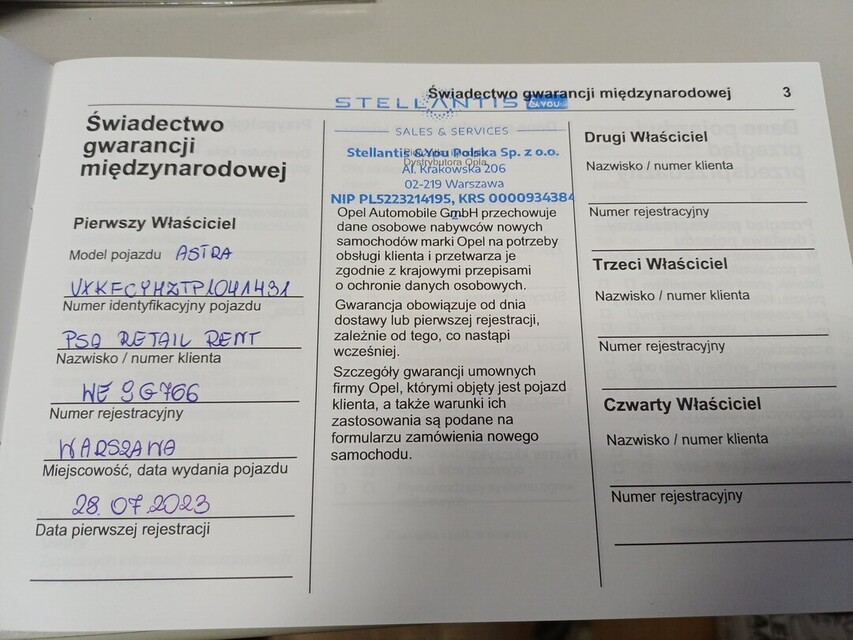 Świadectwo gwarancji międzynarodowej 3
Świadectwo
gwarancji
międzynarodowej
Pierwszy Właściciel
Model pojazdu ASTRA
VXKFCYHZTP1041431
Numer identyfikacyjny pojazdu
PSA RETAIL RENT
Nazwisko / numer klienta
WE 9G766
Numer rejestracyjny
WARSZAWA
Miejscowość, data wydania pojazdu
28.07.2023
Data pierwszej rejestracji
STELLANTIS &YOU
SALES & SERVICES
Stellantis &You Polska Sp. z o.o.
Dystrybutora Opla
Al. Krakowska 206
02-219 Warszawa
NIP PL5223214195, KRS 0000934384
Opel Automobile GmbH przechowuje
dane osobowe nabywców nowych
samochodów marki Opel na potrzeby
obsługi klienta i przetwarza je
zgodnie z krajowymi przepisami
o ochronie danych osobowych.
Gwarancja obowiązuje od dnia
dostawy lub pierwszej rejestracji,
zależnie od tego, co nastąpi
wcześniej.
Szczegóły gwarancji umownych
firmy Opel, którymi objęty jest pojazd
klienta, a także warunki ich
zastosowania są podane na
formularzu zamówienia nowego
samochodu.
Drugi Właściciel
Nazwisko / numer klienta
Numer rejestracyjny
Trzeci Właściciel
Nazwisko / numer klienta
Numer rejestracyjny
Czwarty Właściciel
Nazwisko / numer klienta
Numer rejestracyjny